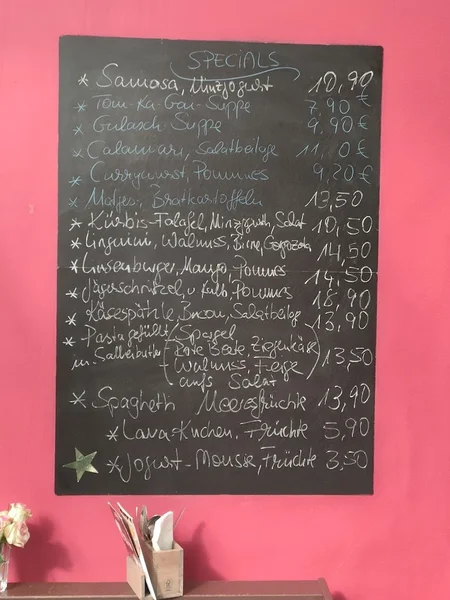 SPECIALS
* Samosa, Minzjogurt 10,90
* Tom-Ka-Gai-Suppe 7,90 €
* Gulasch-Suppe 9,90 €
* Calamari, Salatbeilage 11,10 €
* Currywurst, Pommes 9,20 €
* Matjes, Bratkartoffeln 13,50
* Kürbis-Falafel, Minzjogurt, Salat 10,50
* Linguini, Walnuss, Birne, Gorgonzola 14,50
* Linsenburger, Mango, Pommes 14,50
* Jägerschnitzel v. Kalb, Pommes 18,90
* Käsespätzle, Bacon, Salatbeilage 13,90
* Pasta gefüllt Spargel
in Salbeibutter Rote Beete, Ziegenkäse 13,50
Walnuss, Feige
auf Salat
* Spaghetti Meeresfrüchte 13,90
* Lava-Kuchen, Früchte 5,90
* Jogurt-Mousse, Früchte 3,50